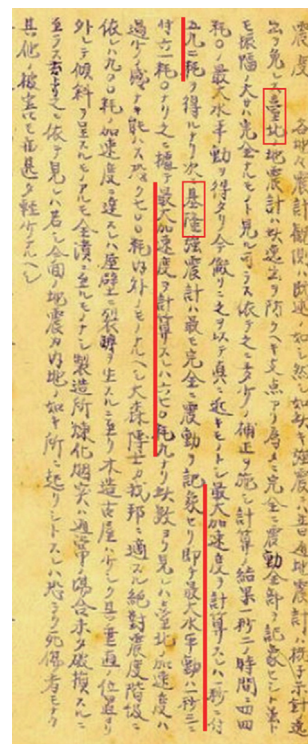 震度 地震計観測 如シ然如此強震ハ普通地震計ハ概子針逸
出ヲ見ル臺北ノ地震計ハ此逸出ヲ防クヘキ支点アリ為メニ完全ニ震動全部ヲ記象セシト雖ト
モ振幅大ハ完全ナルモノト見ル可ラス依テ之ニ多少ノ補正ヲ施シ計算ノ結果一秒一ノ時間ニ四四
粍〇ノ最大水平動ヲ得タリ今假リニ之ヲ以テ真ニ近キモノトシ最大加速度ヲ計算スレハ一秒ニ付
五九二粍ヲ得ルナリ次ニ基隆強震計ハ最モ完全ニ震動ヲ記象セリ即チ最大水平動ハ一秒三ニ
付六一粍〇ナリ之ニ據テ最大加速度ヲ計算スレハ六七〇粍九ナリ此数ヨリ見レハ臺北ノ加速度ハ
過少ノ感ナキ能ハス恐クハ七〇〇粍内外ノモノナルヘシ大森博士カ我邦ニ適スル絶対震度階級ニ
依レハ九〇〇粍加速度ニ達スレハ屋壁ニ裂罅ヲ生スルニ至リ木造古屋ハ少シク其ノ垂直ノ位置ヨリ
外レテ傾斜ヲ呈スルモノアルモ全潰ニ至ルモノナシ製造所煉化烟突ハ通常ノ場合破損スルニ
至ラス云々ト之ニ依テ見レハ若シ今回ノ地震カ内地ノ如キ所ニ起リシトスレハ恐ラク死傷者モナク
其他ノ被害モ甚タ軽少ナルヘシ